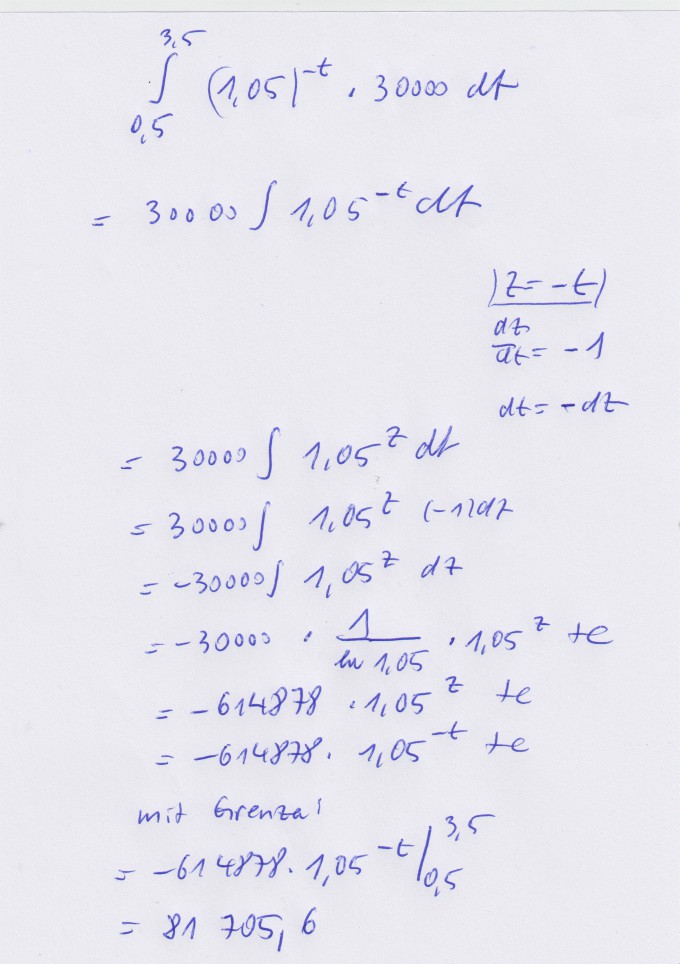 ∫ 0,5 3,5 (1,05)^-t · 30000 dt
= 30000 ∫ 1,05^-t dt
|z = -t|
dz/dt = -1
dt = -dz
= 30000 ∫ 1,05^z dt
= 30000 ∫ 1,05^z (-1)dz
= -30000 ∫ 1,05^z dz
= -30000 · 1/ln 1,05 · 1,05^z +c
= -614878 · 1,05^z +c
= -614878 · 1,05^-t +c
mit Grenza!
= -614878 · 1,05^-t | 0,5 3,5
= 81 705,6